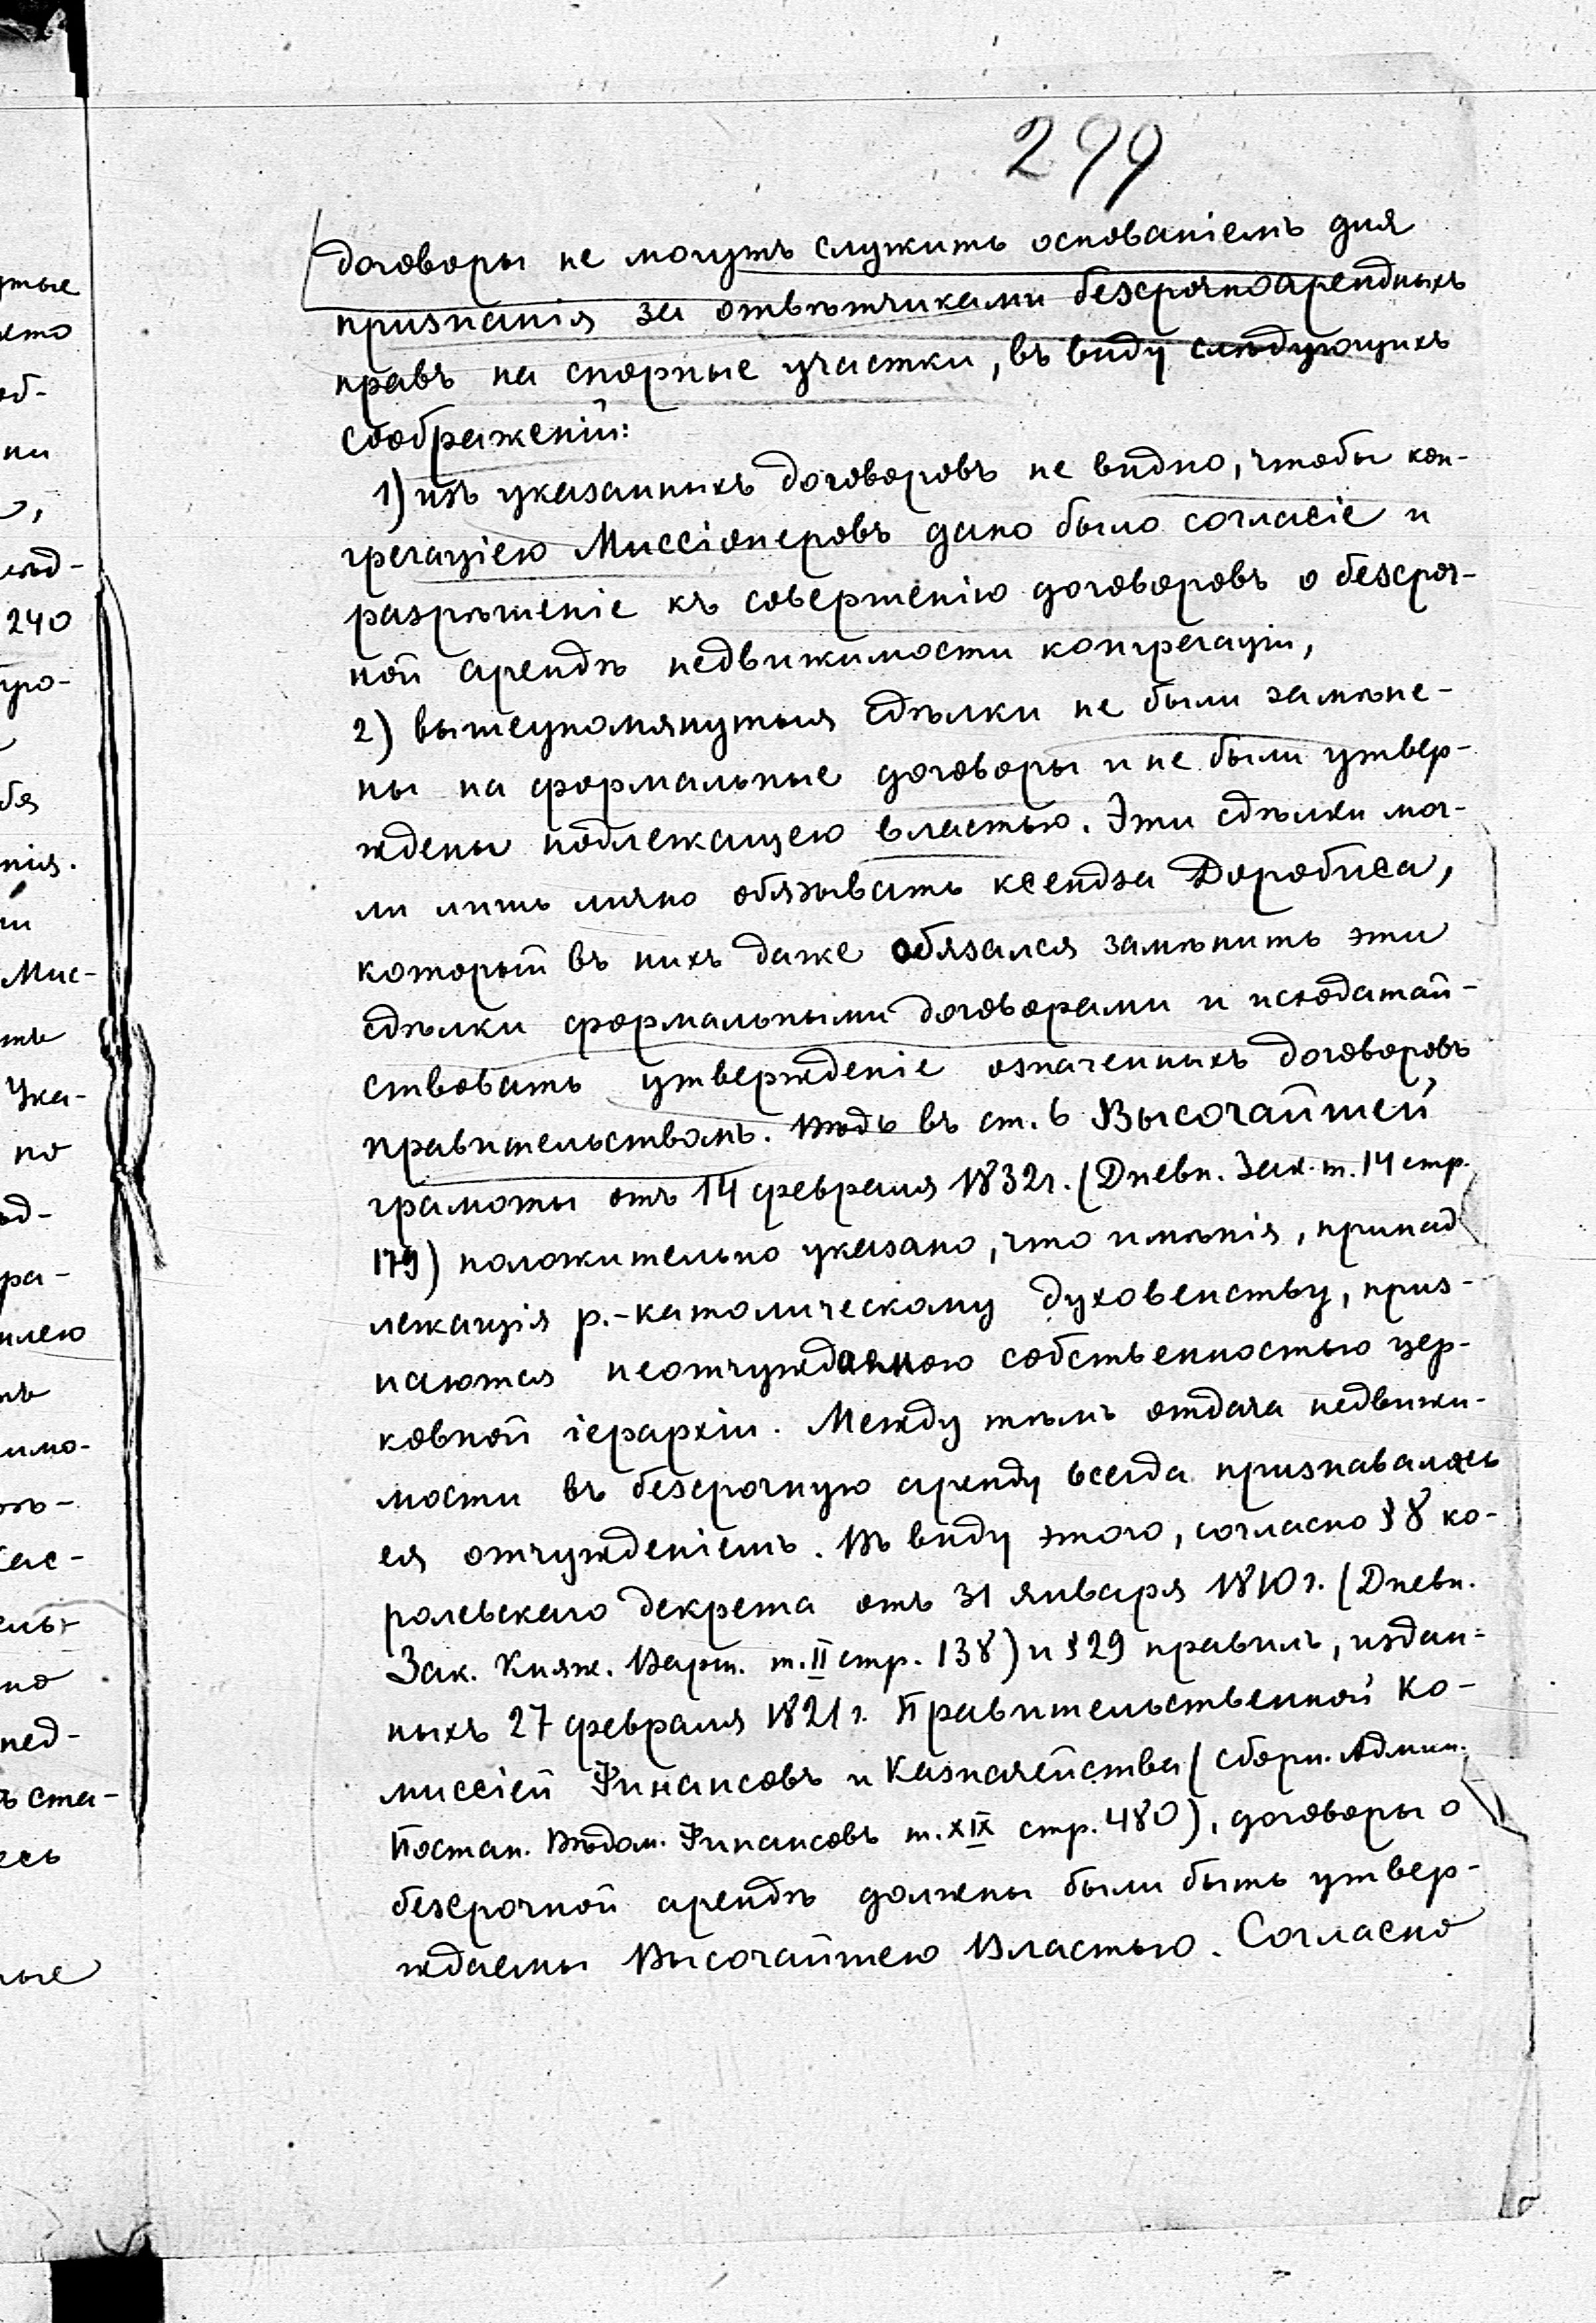 299
договоры не могутъ служить основаніемъ для
признанія за отвѣтчиками безсрочноарендныхъ
правъ на спорные участки, въ виду слѣдующихъ
соображеній:
1) изъ указанныхъ договоровъ не видно, чтобы кон-
грегаціею Миссіонеровъ дано было согласіе и
разрѣшеніе къ совершенію договоровъ о безсроч-
ной арендѣ недвижимости конгрегаціи,
2) вышеупомянутыя сдѣлки не были замѣне-
ны на формальные договоры и не были утвер-
ждены подлежащею властью. Эти сдѣлки мог-
ли лишь лично обязывать ксендза Доробиса,
который въ нихъ даже обязался замѣнить эти
сдѣлки формальными договорами и исходатай-
ствовать утвержденіе означенныхъ договоровъ
правительствомъ. Вѣдь въ ст. 6 Высочайшей
грамоты отъ 14 февраля 1832г. (Дневн. Зак. т. 14 стр.
179) положительно указано, что имѣнія, принад
лежащія р.-католическому духовенству, приз-
наются неотчуждаемою собственностью цер-
ковной іерархіи. Между тѣмъ отдача недвижи-
мости въ безсрочную аренду всегда признавалось
ея отчужденіемъ. Въ виду этого, согласно §8 ко-
ролевскаго декрета отъ 31 января 1810г. (Дневн.
Зак. Княж. Варш. т. II стр. 138) и §29 правилъ, издан-
ныхъ 27 февраля 1821г. Правительственной Ко-
миссіей Финансовъ и Казначейства (сборн. Админ.
Постан. Вѣдом. Финансовъ т. XIX стр. 480), договоры о
безсрочной арендѣ должны были быть утвер-
ждаемы Высочайшею Властью. Согласно